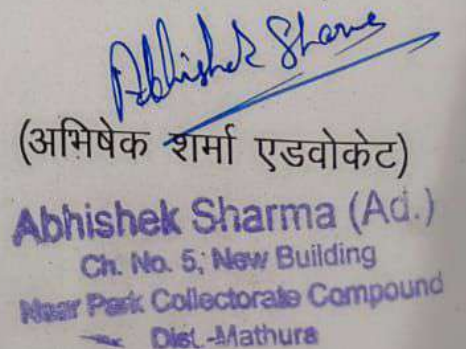 Abhishek Sharma
(अभिषेक शर्मा एडवोकेट)
Abhishek Sharma (Ad.)
Ch. No. 5, New Building
Near Park Collectorate Compound
Dist.-Mathura